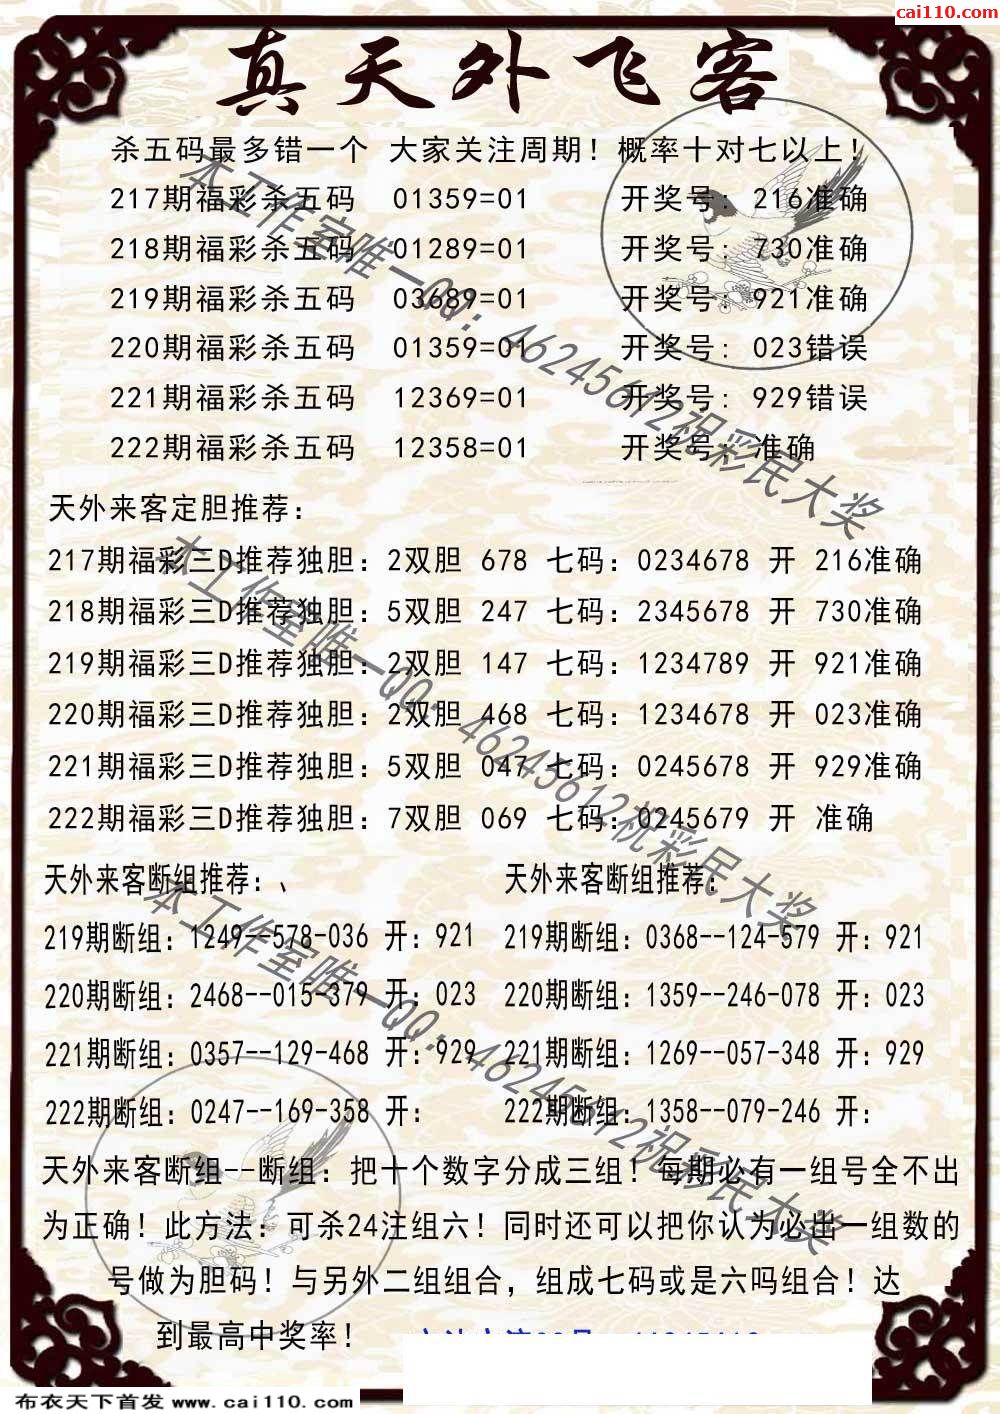 cai110.com
真天外飞客
杀五码最多错一个 大家关注周期！概率十对七以上！
217期福彩杀五码 01359=01 开奖号：216准确
218期福彩杀五码 01289=01 开奖号：730准确
219期福彩杀五码 03689=01 开奖号：921准确
220期福彩杀五码 01359=01 开奖号：023错误
221期福彩杀五码 12369=01 开奖号：929错误
222期福彩杀五码 12358=01 开奖号：准确
天外来客定胆推荐：
217期福彩三D推荐独胆：2双胆 678 七码：0234678 开 216准确
218期福彩三D推荐独胆：5双胆 247 七码：2345678 开 730准确
219期福彩三D推荐独胆：2双胆 147 七码：1234789 开 921准确
220期福彩三D推荐独胆：2双胆 468 七码：1234678 开 023准确
221期福彩三D推荐独胆：5双胆 047 七码：0245678 开 929准确
222期福彩三D推荐独胆：7双胆 069 七码：0245679 开 准确
天外来客断组推荐：、 天外来客断组推荐：
219期断组：1249--578-036 开：921 219期断组：0368--124-579 开：921
220期断组：2468--015-379 开：023 220期断组：1359--246-078 开：023
221期断组：0357--129-468 开：929 221期断组：1269--057-348 开：929
222期断组：0247--169-358 开： 222期断组：1358--079-246 开：
天外来客断组--断组：把十个数字分成三组！每期必有一组号全不出
为正确！此方法：可杀24注组六！同时还可以把你认为必出一组数的
号做为胆码！与另外二组组合，组成七码或是六吗组合！达
到最高中奖率！
本工作室唯一QQ：46245612祝彩民大奖
本工作室唯一QQ：46245612祝彩民大奖
本工作室唯一QQ：46245612祝彩民大奖
布衣天下首发 www.cai110.com